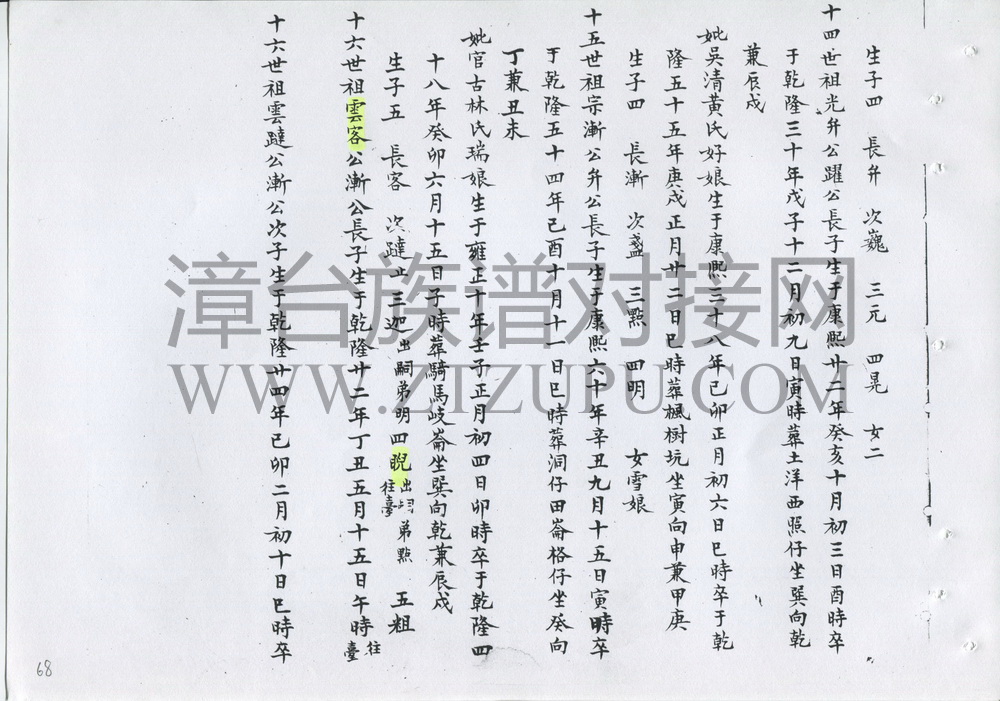 生子四 長弁 次巍 三元 四晃 女二
十四世祖光弁公躍公長子生于康熙廿二年癸亥十月初三日酉時卒
于乾隆三十年戊子十二月初九日寅時葬土洋西照仔坐巽向乾
兼辰戌
妣吳清黃氏好娘生于康熙三十八年己卯正月初六日巳時卒于乾
隆五十五年庚戌正月廿二日巳時葬楓樹坑坐寅向申兼甲庚
生子四 長漸 次盞 三點 四明 女雪娘
十五世祖宗漸公弁公長子生于康熙六十年辛丑九月十五日寅時卒
于乾隆五十四年己酉十月十一日巳時葬洞仔田崙格仔坐癸向
丁兼丑未
妣官古林氏瑞娘生于雍正十年壬子正月初四日卯時卒于乾隆四
十八年癸卯六月十五日子時葬騎馬岐崙坐巽向乾兼辰戌
生子五 長客 次躂止 三迦出嗣弟明 四睨出嗣弟點往臺 五粗
十六世祖雲客公漸公長子生于乾隆廿二年丁丑五月十五日午時往臺
十六世祖雲躂公漸公次子生于乾隆廿四年己卯二月初十日巳時卒
漳台族谱对接网
WWW.ZTZUPU.COM
68